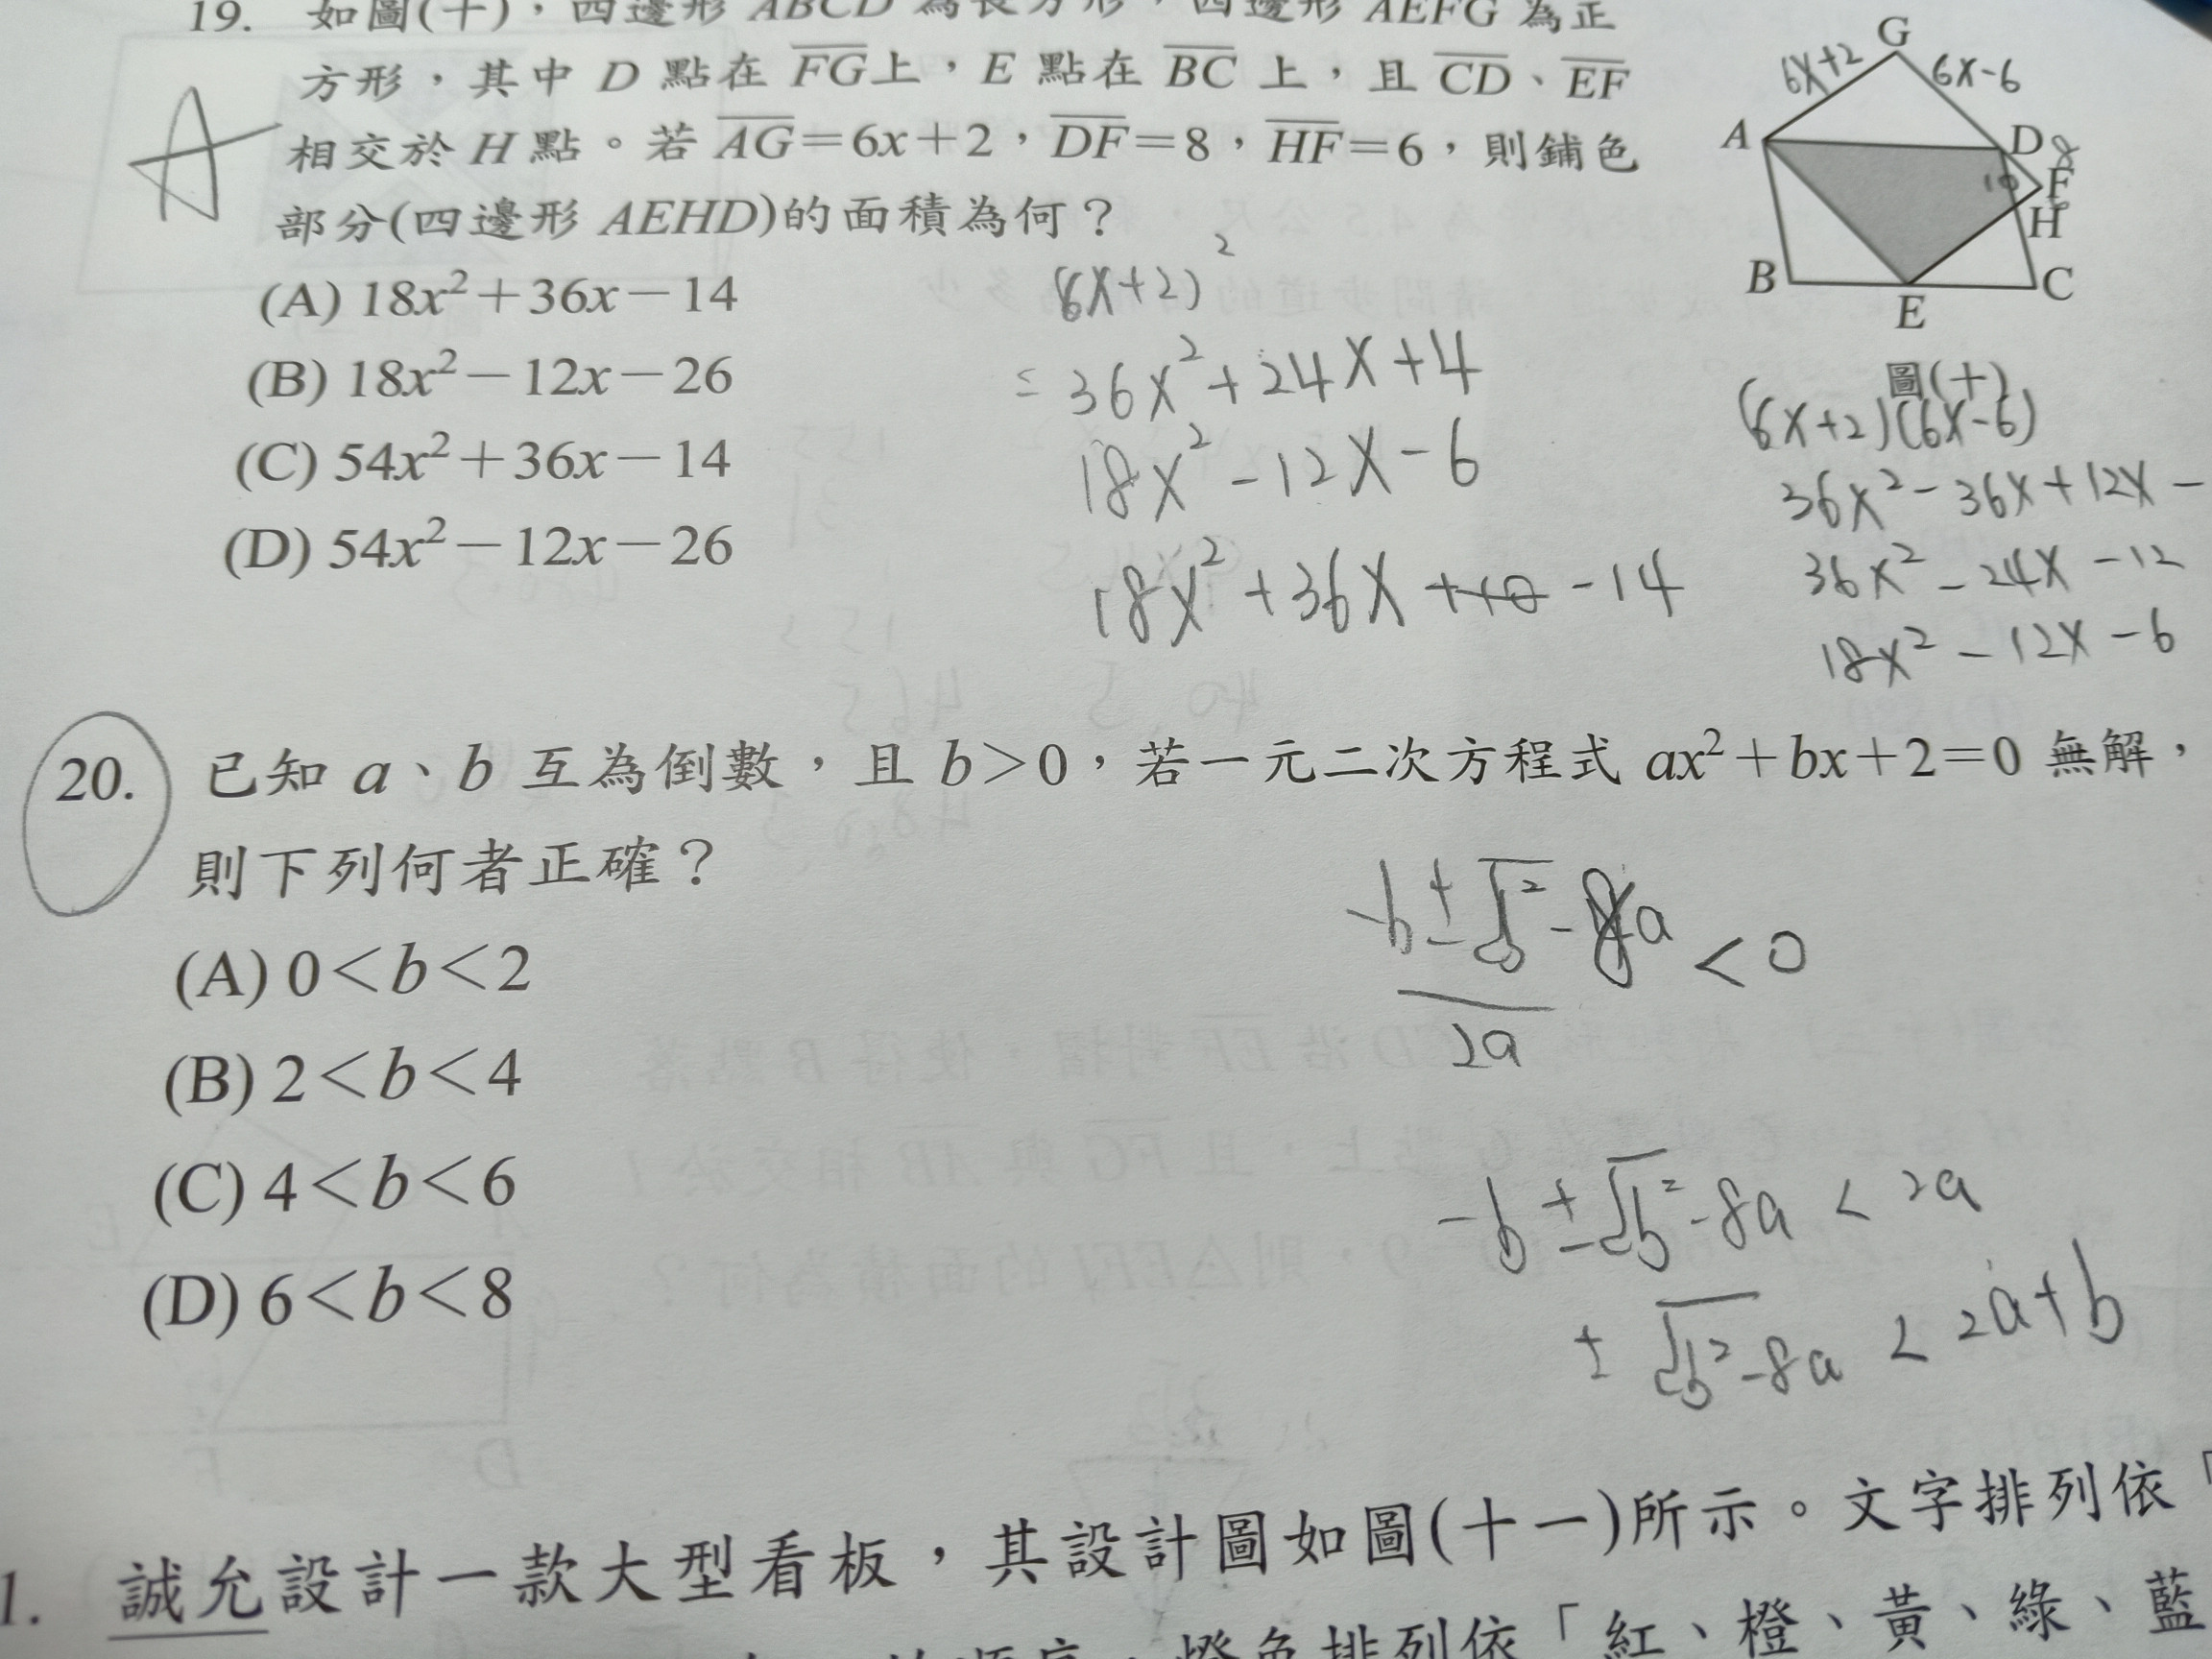 19. 如圖(十)，四邊形 ABCD 為長方形，四邊形 AEFG 為正
方形，其中 D 點在 FG上，E 點在 BC 上，且 CD、EF
相交於 H 點。若 AG=6x+2，DF=8，HF=6，則鋪色
部分(四邊形 AEHD)的面積為何？
(A) 18x²+36x-14
(B) 18x²-12x-26
(C) 54x²+36x-14
(D) 54x²-12x-26
A
G
6x+2
6x-6
A
D
8
10
F
H
B
C
E
圖(十)
(6x+2)²
= 36x²+24x+4
18x²-12x-6
18x²+36x+10 -14
(6x+2)(6x-6)
36x²-36x+12x-
36x²-24x-12
18x²-12x-6
20. 已知 a、b 互為倒數，且 b>0，若一元二次方程式 ax²+bx+2=0 無解，
則下列何者正確？
(A) 0<b<2
(B) 2<b<4
(C) 4<b<6
(D) 6<b<8
-b±√b²-8a <0
2a
-b±√b²-8a < 2a
±√b²-8a < 2a+b
1. 誠允設計一款大型看板，其設計圖如圖(十一)所示。文字排列依「
燈色排列依「紅、橙、黃、綠、藍